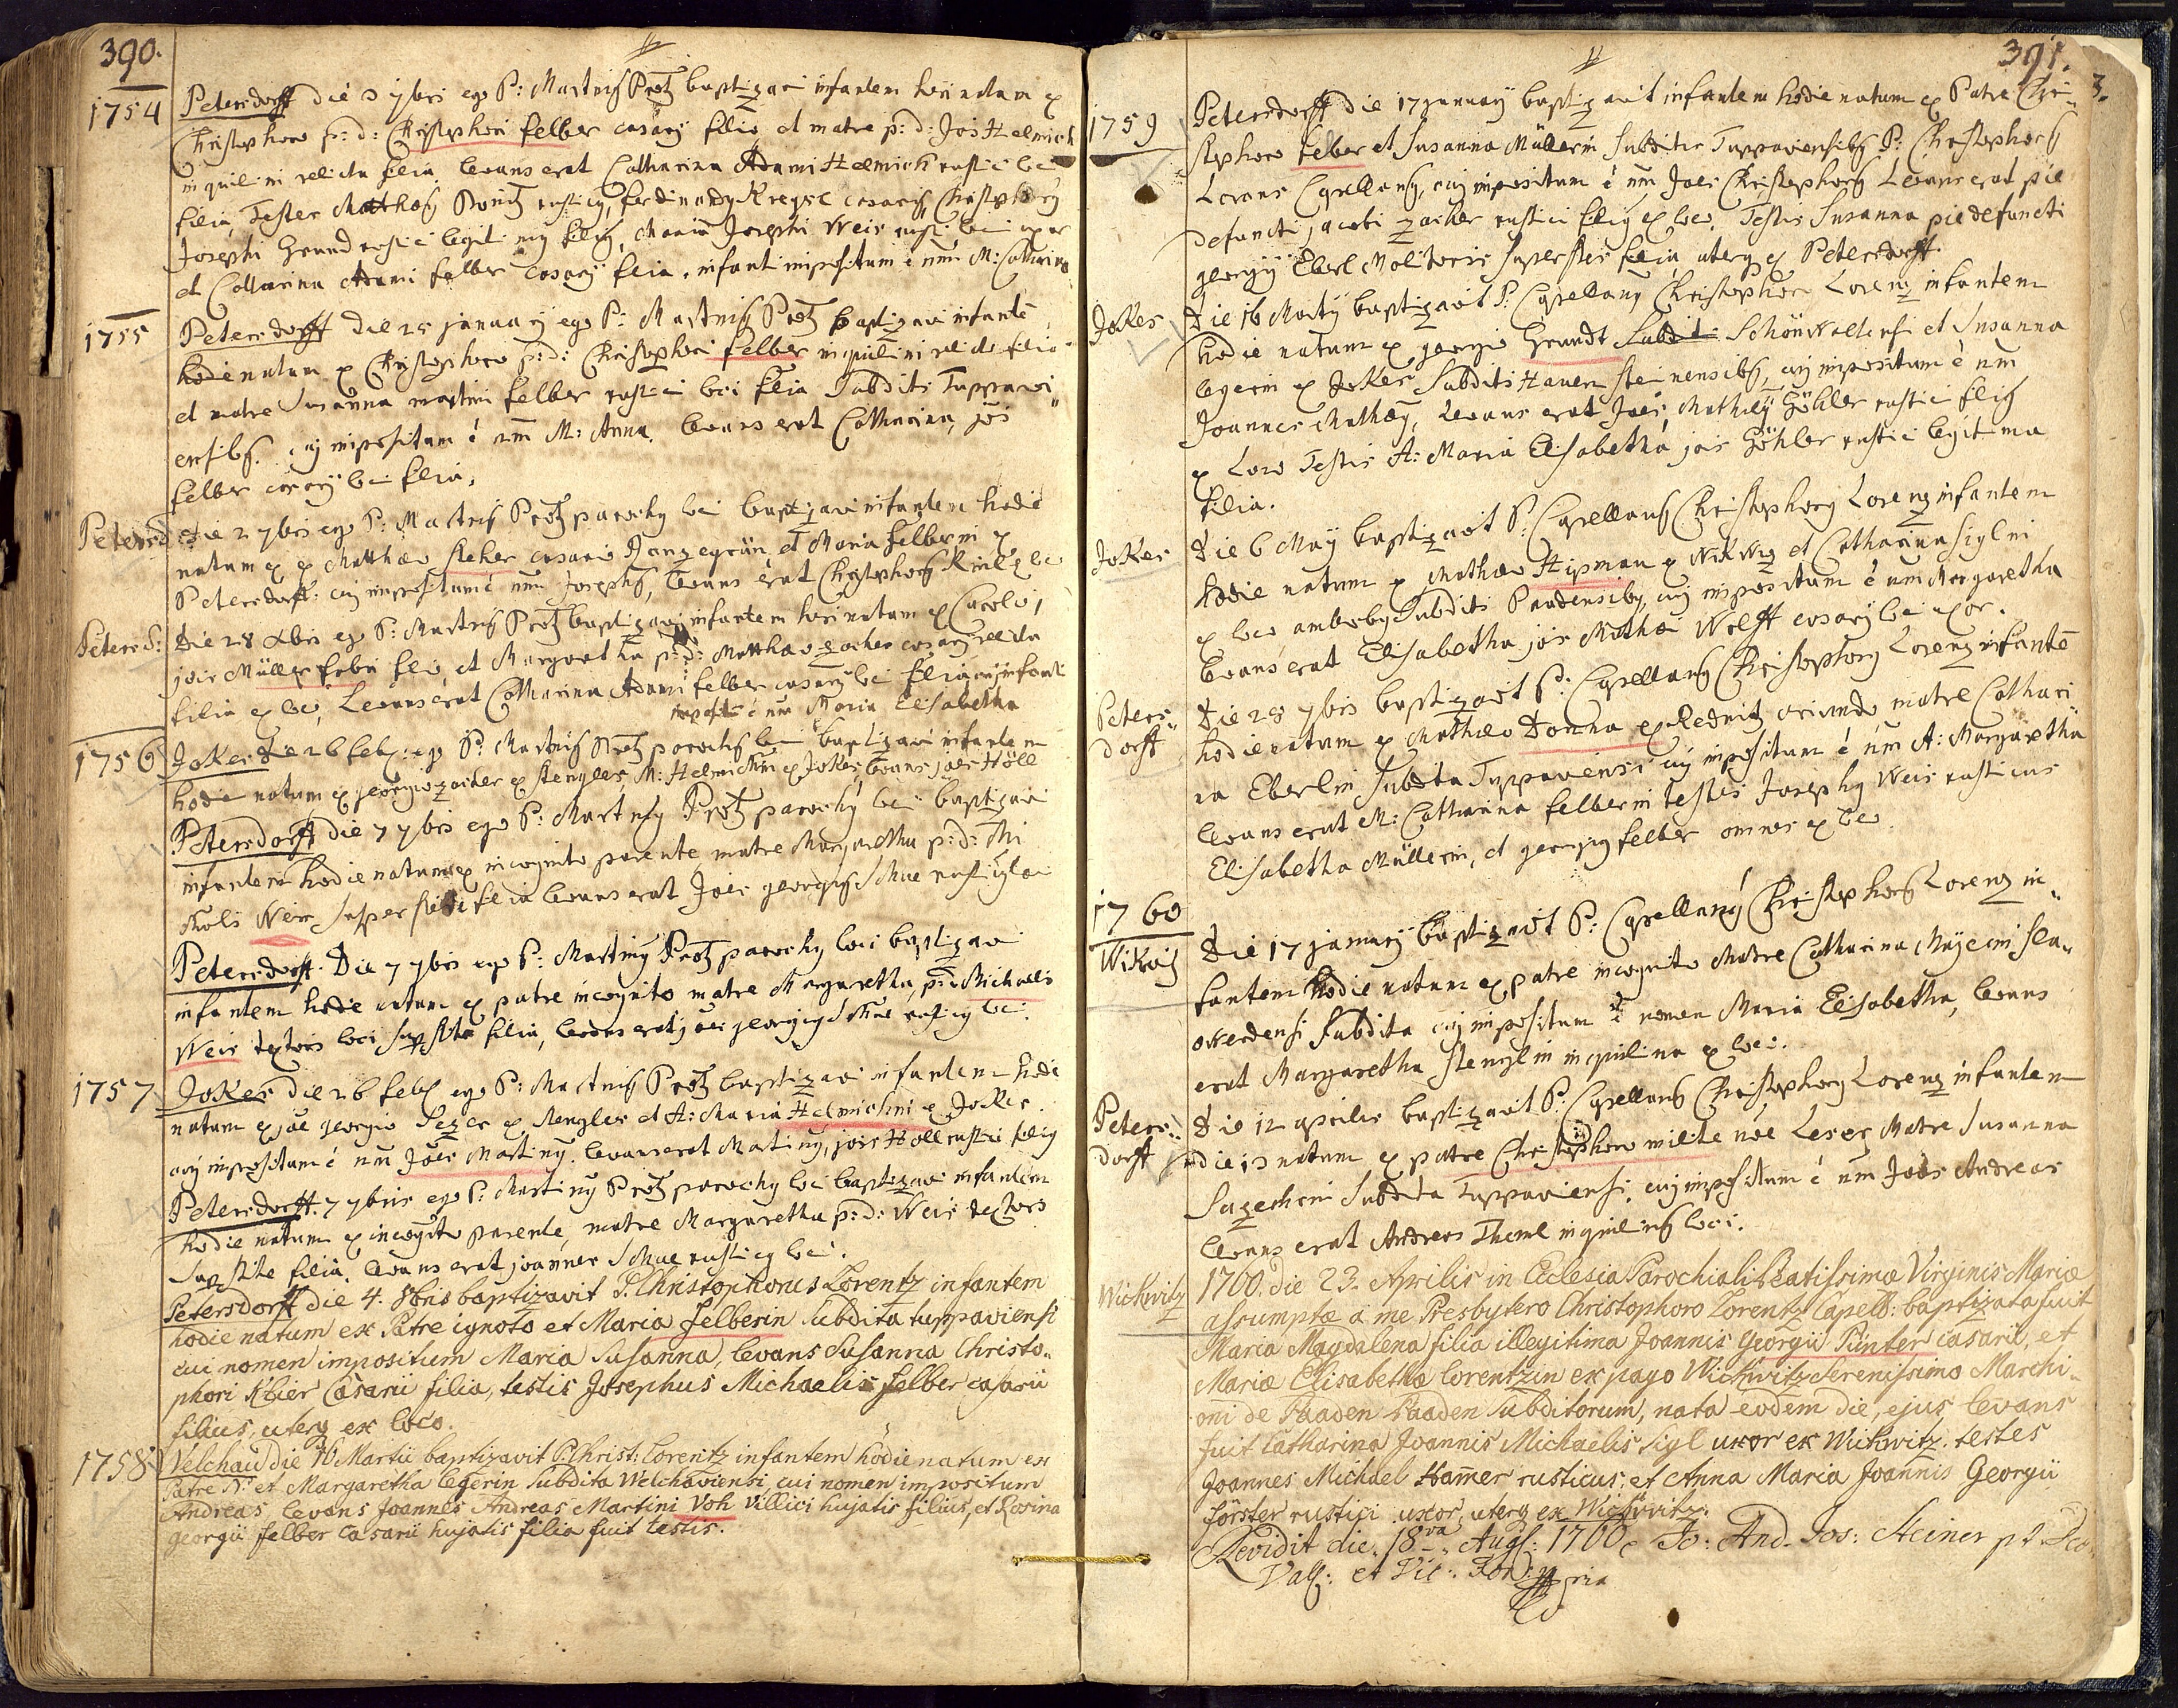 390.
1754
Petersdorff die 3 7bris ego P: Martinus Protz baptizavi infantem heri natum ex
Christophoro p: d: Christophori felber casarij filio et matre p: d: Jois Helmich
inquilini relicta filia. levans erat Catharina Adami Helmich rustici loci
filia, Testes Matthæus rusticus, ferdinandus casarius Christophorus
Josephi Grund rustici legitimus filius, Maria Josephi Weis rustici loci uxor
et Catharina Adami felber casarij filia, infanti impositum é nm̄ M: Catharina
1755
Petersdorff Die 25 january ego P: Martinus Protz baptizavi infantē
hodie natum ex Christophoro p: d: Christophori felber inquilini relicto filio
et matre Susanna martini felber rustici loci filia Subditis Tuppavi„
ensibus. cuj impositum é nm̄ M: Anna. levans erat Catharina, jōis
felber casarij loci filia.
Petersd: die 2 7bris ego P: Martinus Protz parochus loci baptizavi infantem hodie
natum ex Matthæo casario et Maria felberin ex
Petersdorff: cuj impositum é nm̄ Josephus, levans erat Christophorus ex loco
Peters d: die 28 Xbris ego P: Martinus Protz baptizavi infantem heri natum ex Carolo,
jois Müller fabri filio, et Margaretha p: d: Matthæo zacher casarij relicta
filia ex loco, Levans erat Catharina Adami felber casarij loci filia, cuj infanti
impositū é nm̄ Maria Elisabetha
1756
Joker die 26 feb: ego P: Martinus Protz parochus loci baptizavi infantem
hodie natum ex georgio zacher ex stengles, M: Helmichin ex Joker, levans joes Höll
Petersdorff die 7 7bris ego P: Martinus Protz parochus loci baptizavi
infantem hodie natum ex incognito parente matre Margaretha p: d: Mi
chaelis Weis superstite filia levans erat Joes georgius rusticus loci
Petersdorff. Die 7 7bris ego P: Martinus Protz parochus loci baptizavi
infantem hodie natum ex patre incognito matre Margaretha, p: d: Michaelis
Weis textoris loci superstite filia, levans erat joes georgius rusticus loci.
1757
Joker die 26 feb: ego P: Martinus Protz baptizavi infantem hodie
natum ex jōe georgio Sezer ex stengles et A: Maria Helmichin ex Joker.
cuj impositum é nm̄ Joes Martinus. levans erat Martinus, jois Höll rustici filius
Petersdorff. 7 7bris ego P: Martinus Protz parochus loci baptizavi infantem
hodie natum ex incognito parente, matre Margaretha p: d: Weis textoris
superstite filia. levans erat joannes rusticus loci.
Petersdorff die 4. 8bris baptizavit P. Christophorus Lorentz infantem
hodie natum ex Patre ignoto et Maria Felberin Subdita tuppaviensi
cui nomen impositum Maria Susanna, levans Susanna Christo„
phori Klier Casarii filia, testis Josephus Michaelis felber casarii
filius, uterq ex loco.
1758
Velchau die 16 Martii baptizavit P. Christ: Lorentz infantem hodie natum ex
Patre N: et Margaretha legerin Subdita Welchaviensi, cui nomen impositum
Andreas levans Joannes Andreas Martini Voh villici hujatis filius, et Rosina
Georgii felber casarii hujatis filia fuit testis.
391.
3.
1759
Petersdorff die 17 january baptizavit infantem hodie natum ex Patre Chri„
stophoro felber et Susanna Müllerin Subditis Tuppaviensibus P: Christophorus
Lorans Capellanus, cuj impositum é nm̄ Joes Christophorus Levans erat pie
defuncti jacobi zacher rustici filius ex loco. Testis Susanna pie defuncti
georgij Eberl Molitoris superstes filia uterq ex Petersdorff.
Joker
die 16 Martij baptizavit P: Capellanus Christophor Lorenz infantem
hodie natum ex georgio Grundt Subdit: Schönwaldensi et Susanna
legerin ex Joker Subditis Hauensteinensibus, cuj impositum é nm̄
Joannes Mathæus, Levans erat Joes, Mathiæ Göhler rustici filius
ex loco Testis A: Maria Elisabetha jois Göhler rustici legitima
filia.
Joker
die 6 May baptizavit P: Capellanus Christophorus Lorenz infantem
hodie natum ex Mathæo Hipman ex Wikwiz et Catharina Siglin
ex loco ambobus Subditis Baadensibus, cuj impositum é nm̄ Margaretha
levans erat Elisabetha jois Mathæi Wolff casarij loci uxor.
Peters„
dorff
die 28 7bris baptizavit P: Capellanus Christophorus Lorenz infantē
hodie natum ex Mathæo Donna ex Rednitz oriundo matre Cathari
na Eberlin Subdita Tuppaviensi cuj impositum é nm̄ A: Margaretha
levans erat M: Catharina felberin testes Josephus Weis rusticus
Elisabetha Müllerin, et georgius felber omnes ex loco.
1760
Wikwitz
die 17 january baptizavit P: Capellanus Christophorus Lorenz in„
fantem hodie natum ex patre incognito Matre Catharina Mayerin Sla„
subdita cuj impositum é nomen Maria Elisabetha, levans
erat Margaretha Stenglin inquilina ex loco.
Peters„
dorff
die 12 aprilis baptizavit P: Capellanus Christophorus Lorenz infantem
die 13 natum ex patre Christophoro milite nōe Leser Matre Susanna
Subdita Tuppaviensi, cuj impositum é nm̄ Joes Andreas
levans erat Andreas Theml inquilinus loci.
Wickwitz
1760. die 23. Aprilis in Ecclesia Parochiali Beatissimæ Virginis Mariæ
assumptæ a me Presbytero Christophoro Lorentz Capell: baptizata fuit
Maria Magdalena filia illegitima Joannis Georgii Pünter casarii, et
Mariæ Elisabethæ lorentzin ex pago Wickwitz Serenissimo Marchi„
oni de Baaden Baaden Subditorum, nata eodem die, ejus levans
fuit Catharina Joannis Michaelis Sigl uxor ex Wickwitz. testes
Joannes Michael Ham̄er rusticus, et Anna Maria Joannis Georgii
förster rustici uxor, uterq ex Wickwitz.
Revidit die 18va Augs: 1760 Jo: And. Jos: Steiner pt
Vall: et Vic: For: mpria